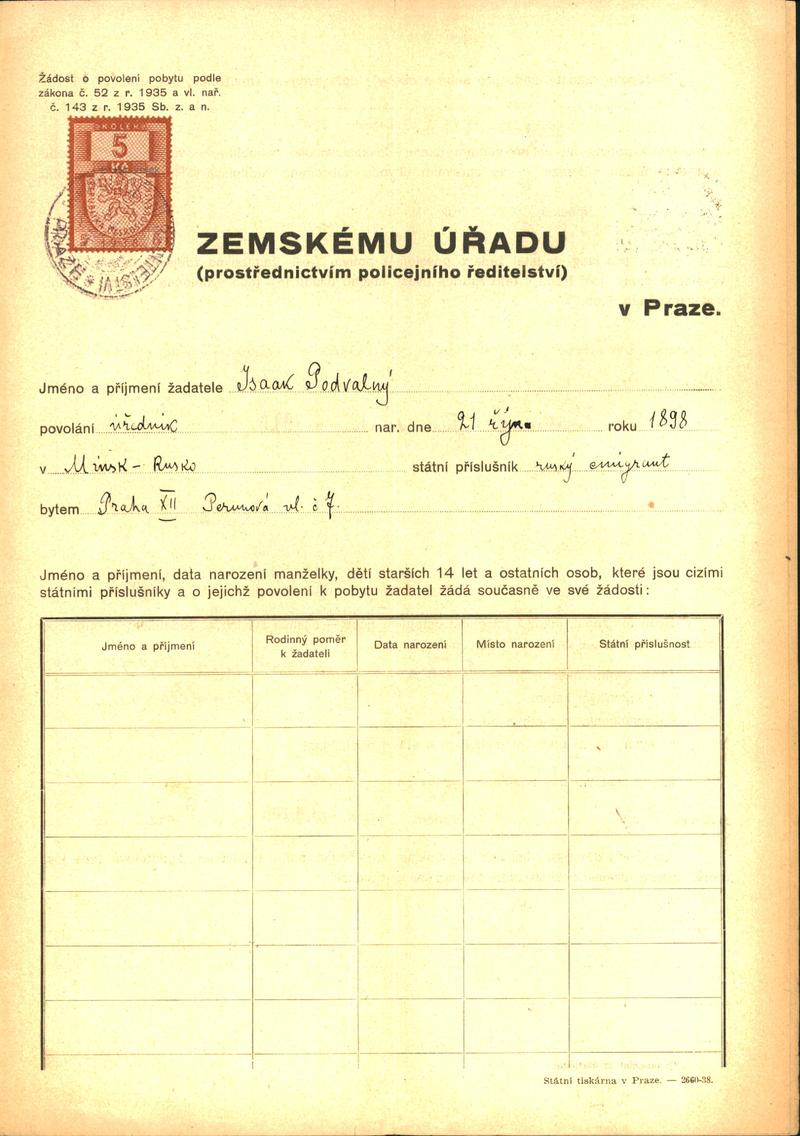 Žádost o povolení pobytu podle
zákona č. 52 z r. 1935 a vl. nař.
č. 143 z r. 1935 Sb. z. a n.
KOLEK
5
ZEMSKÉMU ÚŘADU
(prostřednictvím policejního ředitelství)
v Praze.
Jméno a příjmení žadatele Isaak Podvalný
povolání úředník nar. dne 21 října roku 1898
v Minsk - Rusko státní příslušník ruský emigrant
bytem Praha XII Perunová ul. č 7.
Jméno a příjmení, data narození manželky, dětí starších 14 let a ostatních osob, které jsou cizími
státními příslušníky a o jejichž povolení k pobytu žadatel žádá současně ve své žádosti:
Jméno a příjmení Rodinný poměr k žadateli Data narození Místo narození Státní příslušnost
Státní tiskárna v Praze. — 2660-38.